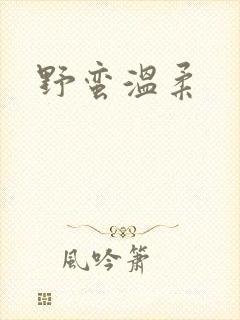 野蛮温柔
風吟簫